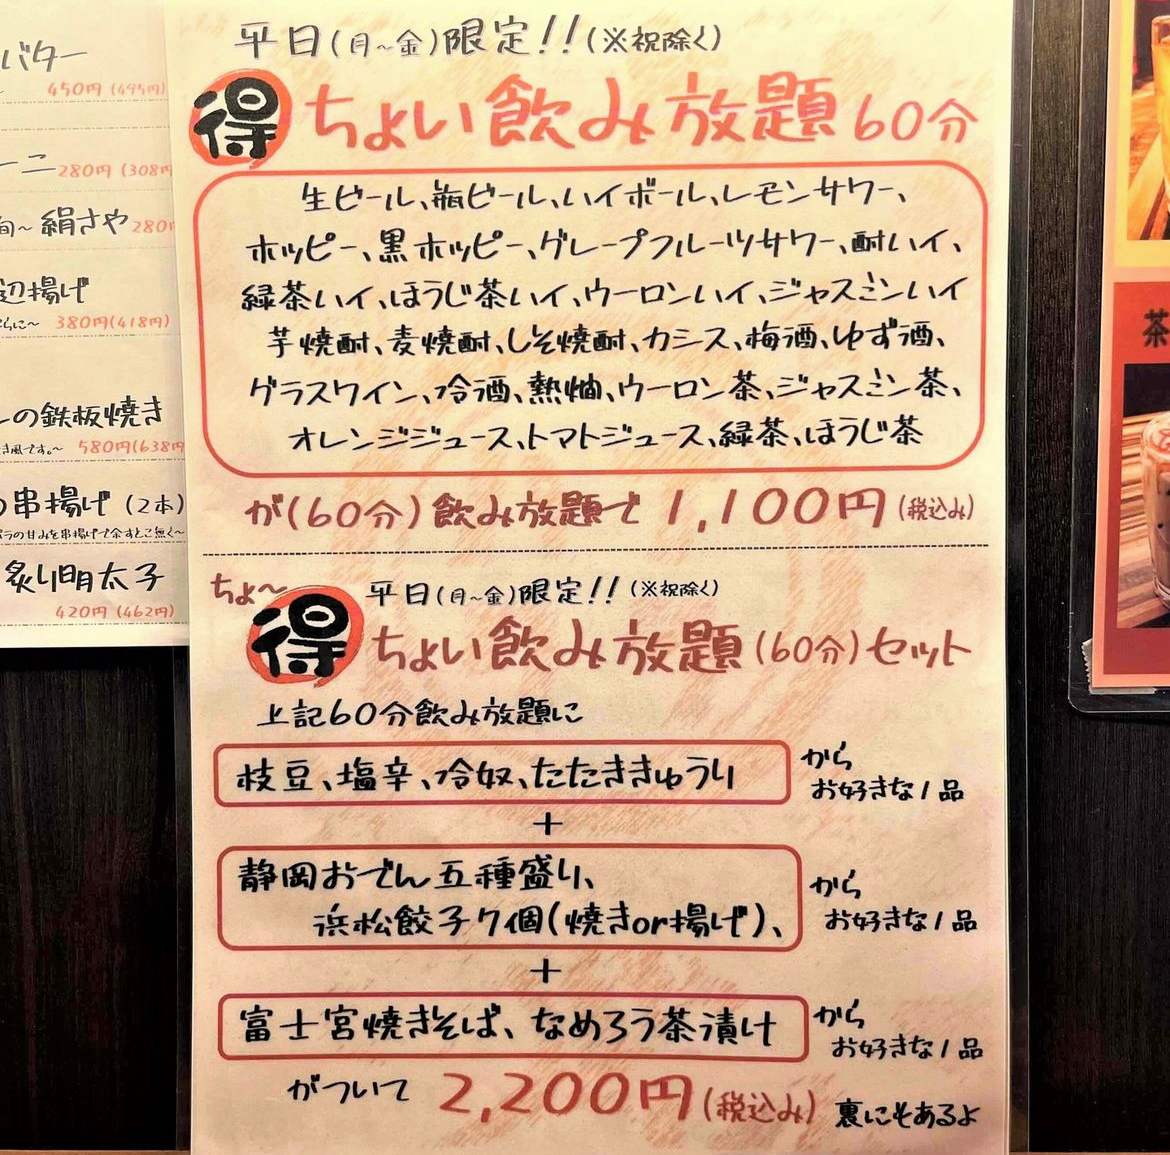 バター
450円(495円)
280円(308円
旬～絹さや 280
辺揚げ
380円(418円)
の鉄板焼き
き風です。～ 580円(638円
の串揚げ(2本)
の甘みを串揚げで余すとこ無く～
炙り明太子
420円(462円)
平日(月～金)限定!!(※祝除く)
得 ちょい飲み放題60分
生ビール、瓶ビール、ハイボール、レモンサワー、
ホッピー、黒ホッピー、グレープフルーツサワー、酎ハイ、
緑茶ハイ、ほうじ茶ハイ、ウーロンハイ、ジャスミンハイ
芋焼酎、麦焼酎、しそ焼酎、カシス、梅酒、ゆず酒、
グラスワイン、冷酒、熱燗、ウーロン茶、ジャスミン茶、
オレンジジュース、トマトジュース、緑茶、ほうじ茶
が(60分)飲み放題で 1,100円(税込み)
ちょ～
得 平日(月～金)限定!!(※祝除く)
ちょい飲み放題(60分)セット
上記60分飲み放題に
枝豆、塩辛、冷奴、たたききゅうり
から
お好きな1品
+
静岡おでん五種盛り、
浜松餃子7個(焼きor揚げ)、
から
お好きな1品
+
富士宮焼きそば、なめろう茶漬け
から
お好きな1品
がついて 2,200円(税込み)
裏にもあるよ
茶